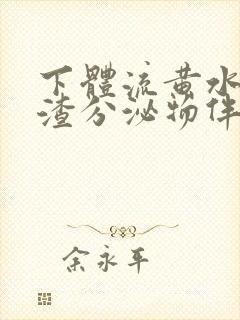 下體流黄水
渣分泌物伴
余永平